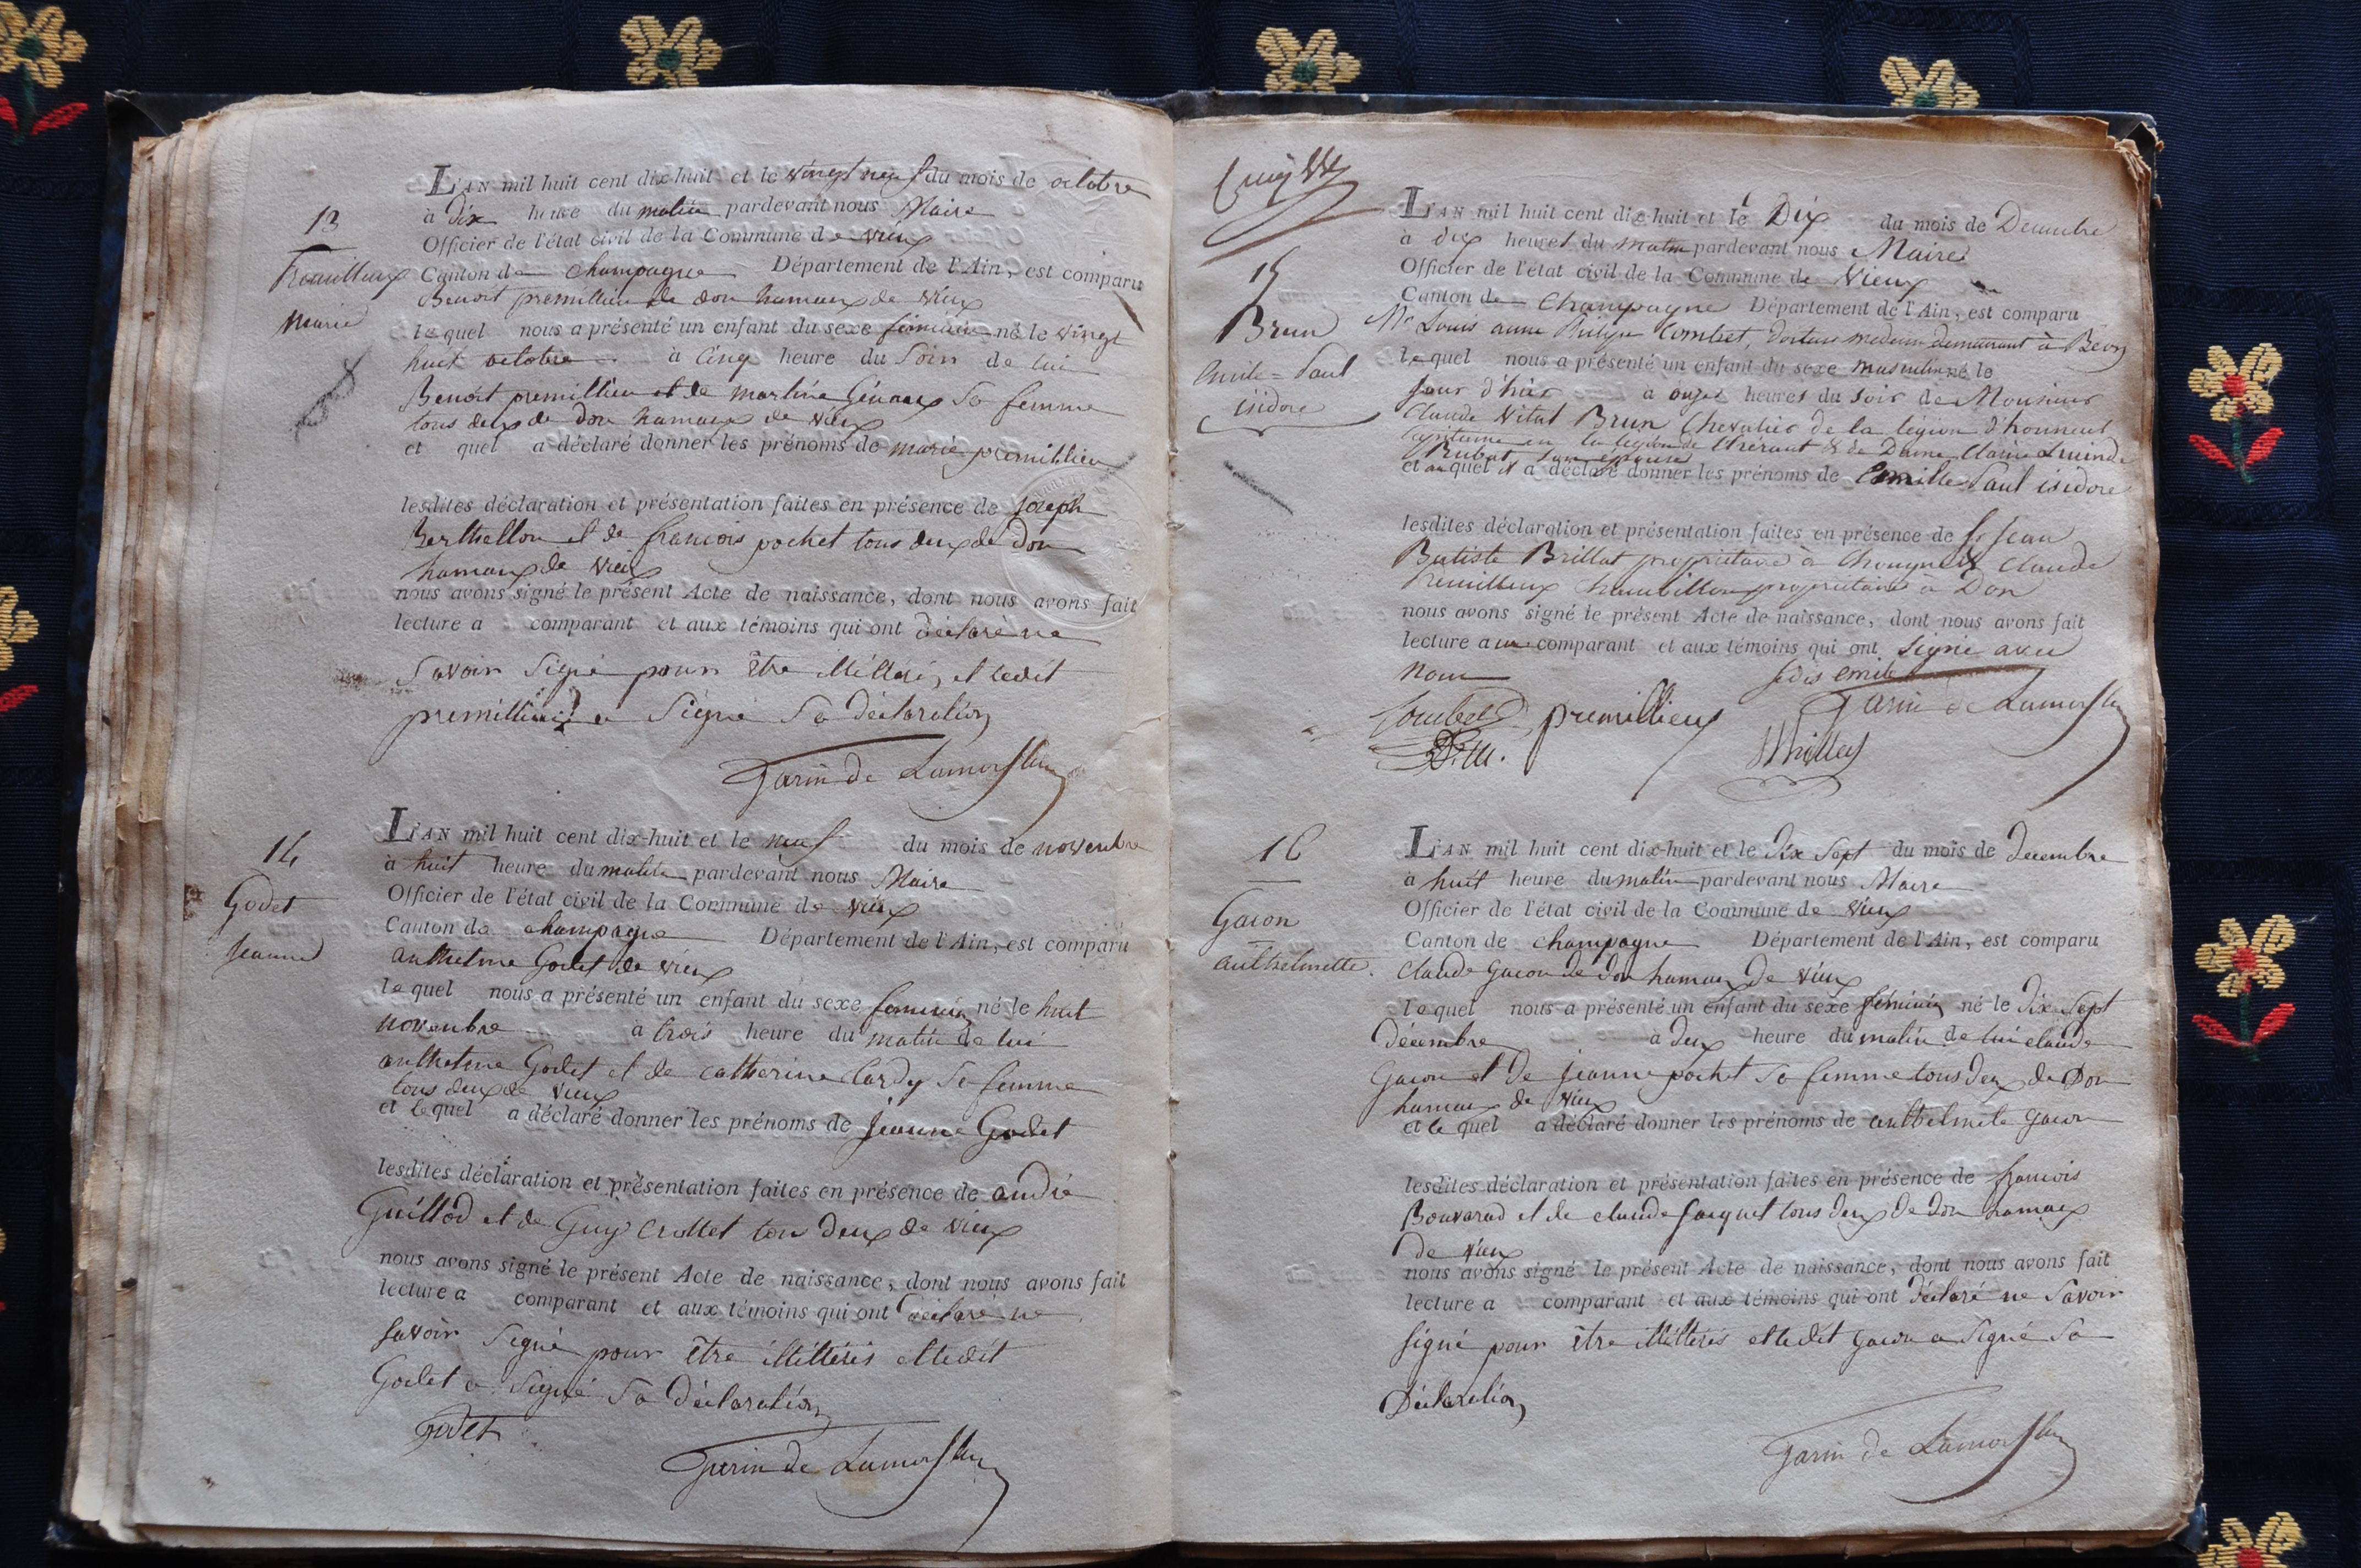 13
Premillieux
Marie
L'AN mil huit cent dix-huit et le vingt neuf du mois de octobre
à dix heure du matin pardevant nous Maire
Officier de l'état civil de la Commune de vieux
Canton de champagne Département de l'Ain, est comparu
Benoit premillieu de don hamaux de vieux
lequel nous a présenté un enfant du sexe féminin né le vingt
huit octobre à cinq heure du Soir de lui
Benoit premillieu et de martine Sa femme
tous deux de Don hamaux de vieux
et quel a déclaré donner les prénoms de marie premillieu
lesdites déclaration et présentation faites en présence de Joseph
Berthellon et de francois pochet tous deux de Don
hamaux de vieux
nous avons signé le présent Acte de naissance, dont nous avons fait
lecture a comparant et aux témoins qui ont déclaré ne
Savoir Signé pour être illétéré, et ledit
premillieu a Signé Sa déclaration
Garin de Lamorflan
14
Godet
Jeanne
L'AN mil huit cent dix-huit et le neuf du mois de novembre
à huit heure du matin pardevant nous Maire
Officier de l'état civil de la Commune de vieux
Canton de champagne Département de l'Ain, est comparu
anthelme Godet de vieux
lequel nous a présenté un enfant du sexe feminin né le huit
novembre à trois heure du matin de lui
anthelme Godet et de catherine Cardy Se femme
tous deux de vieux
et lequel a déclaré donner les prénoms de Jeanne Godet
lesdites déclaration et présentation faites en présence de andré
Guillod et de Guy Crottet tou deux de vieux
nous avons signé le présent Acte de naissance, dont nous avons fait
lecture a comparant et aux témoins qui ont déclaré ne
Savoir Signé pour être illétérés et ledit
Godet a Signé Sa déclaration
Godet
Garin de Lamorflan
15
Brun
Emile = Paul
isidore
L'AN mil huit cent dix-huit et le Dix du mois de Decembre
à dix heures du matin pardevant nous Maire
Officier de l'état civil de la Commune de Vieux
Canton de Champagne Département de l'Ain, est comparu
Mr Louis anne Philippe Combet, docteur medecin demeurant à Beon
lequel nous a présenté un enfant du sexe masculin né le
jour d'hier à onze heures du soir de Monsieur
Claude Vital Brun Chevalier de la legion d'honneur
Capitaine en la legion de l'herault & de Dame Clarice Lucinde
Rubat son épouse
et auquel il a déclaré donner les prénoms de Emille Paul isidore
lesdites déclaration et présentation faites en présence de Sr Jean
Batiste Brillat propriétaire à & Claude
Premillieux propriétaire à Don
nous avons signé le présent Acte de naissance, dont nous avons fait
lecture au comparant et aux témoins qui ont signé avec
nous
je dis emile
Combet D. premillieux Garin de Lamorflan
D.m. Brillat
16
Gacon
anthelmette.
L'AN mil huit cent dix-huit et le Dix Sept du mois de decembre
à huit heure du matin pardevant nous Maire
Officier de l'état civil de la Commune de Vieux
Canton de champagne Département de l'Ain, est comparu
claude Gacon de don hamaux de vieux
lequel nous a présenté un enfant du sexe féminin né le Dix Sept
décembre à deux heure du matin de lui claude
Gacon et de Jeanne pochet Sa femme tous deux de Don
hamaux de vieux
et le quel a déclaré donner les prénoms de anthelmete gacon
lesdites déclaration et présentation faites en présence de francois
Bouvarad et de claude Jacquet tous deux de Don hamaux
de vieux
nous avons signé le présent Acte de naissance, dont nous avons fait
lecture a comparant et aux témoins qui ont déclaré ne Savoir
Signé pour être illétérés et ledit gacon a Signé Sa
Déclaration
Garin de Lamorflan